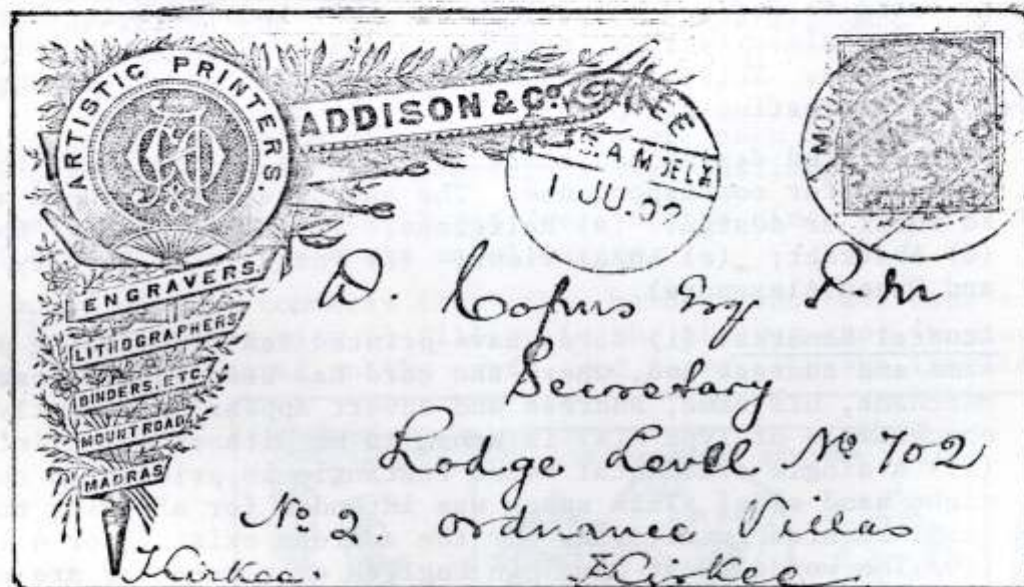 ARTISTIC PRINTERS.
ADDISON & Co.
ENGRAVERS,
LITHOGRAPHERS,
BINDERS, ETC.
MOUNT ROAD,
MADRAS
MOUNT ROAD
1 JU
Secretary
Lodge Level No 702
No. 2 Ordnance Villas
Kirkee.
Kirkee